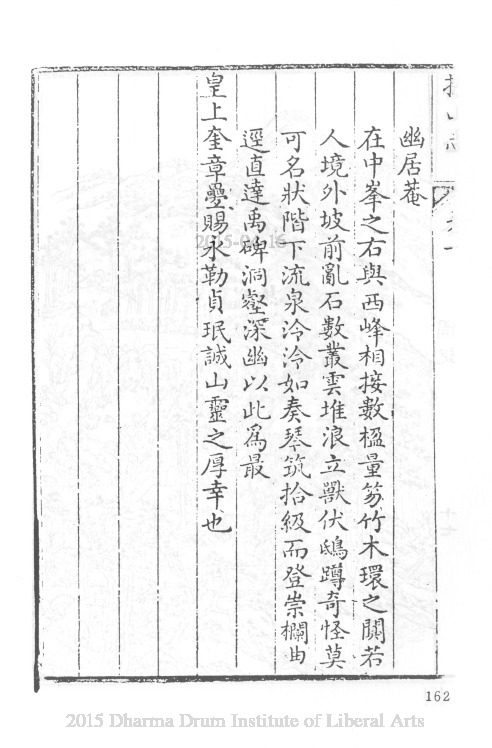 幽居菴
在中峯之右與西峰相接數楹量笏竹木環之闃若
人境外坡前亂石數叢雲堆浪立獸伏鴟蹲奇怪莫
可名狀階下流泉泠泠如奏琴筑拾級而登崇欄曲
逕直達禹碑洞壑深幽以此為最
皇上奎章疊賜永勒貞珉誠山靈之厚幸也
2015-04-16
162
2015 Dharma Drum Institute of Liberal Arts